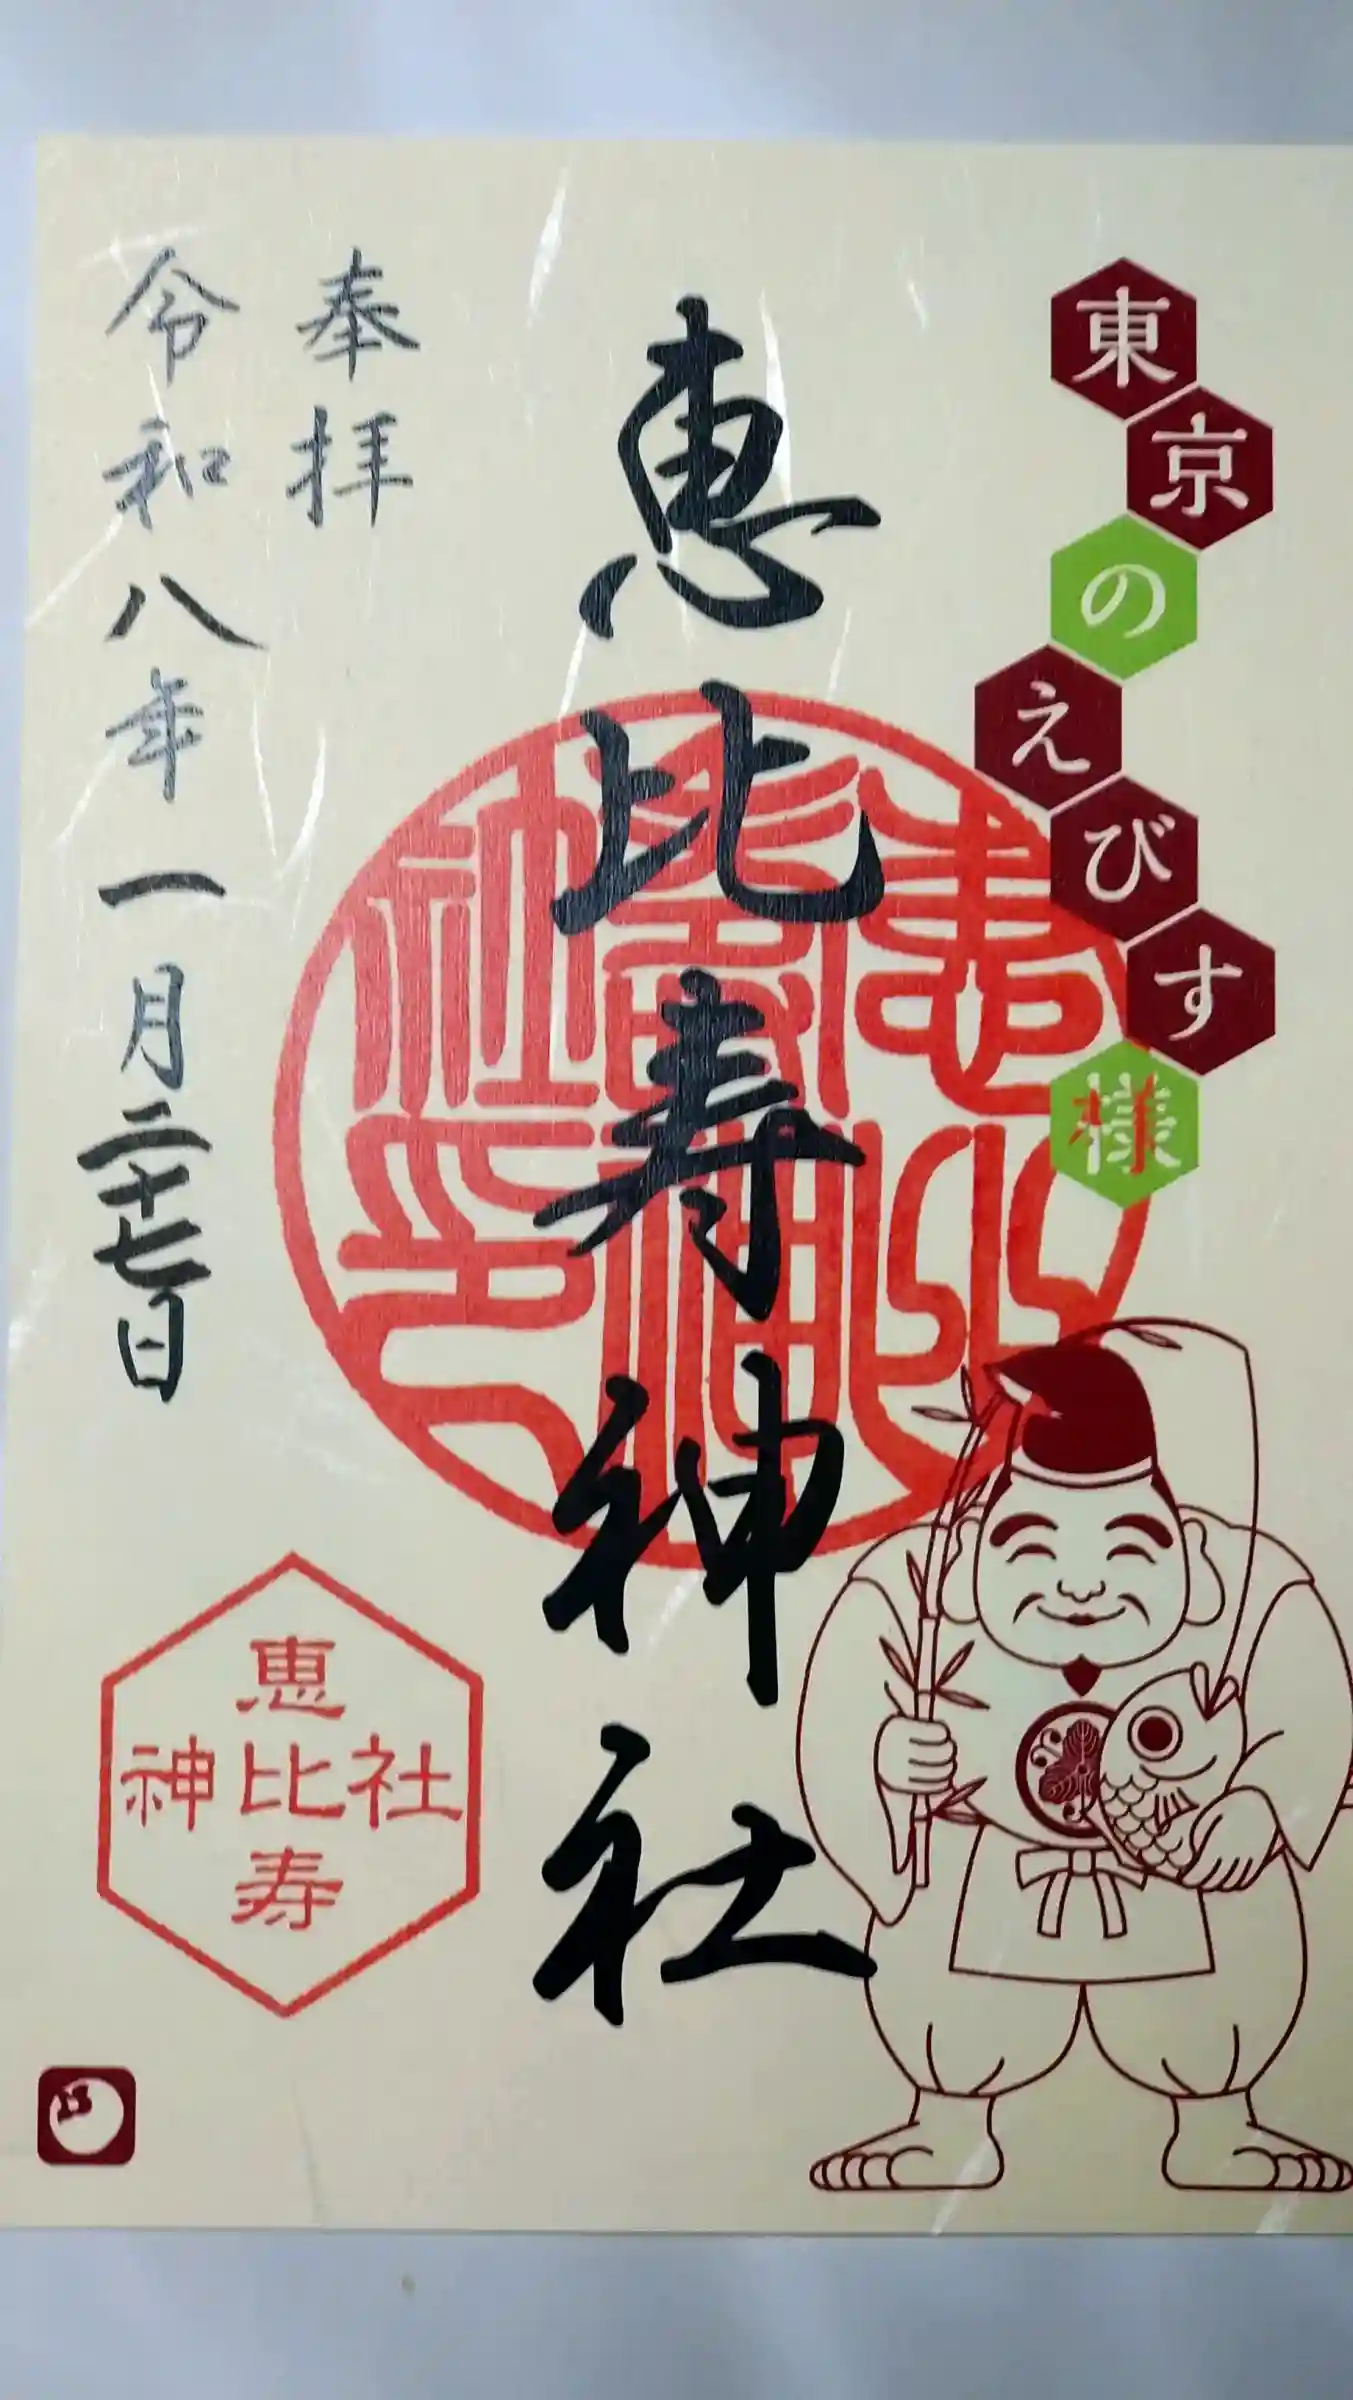 東京のえびす様
恵比寿神社
奉拝
令和八年一月二十七日
恵比寿神社印
恵比寿
神社